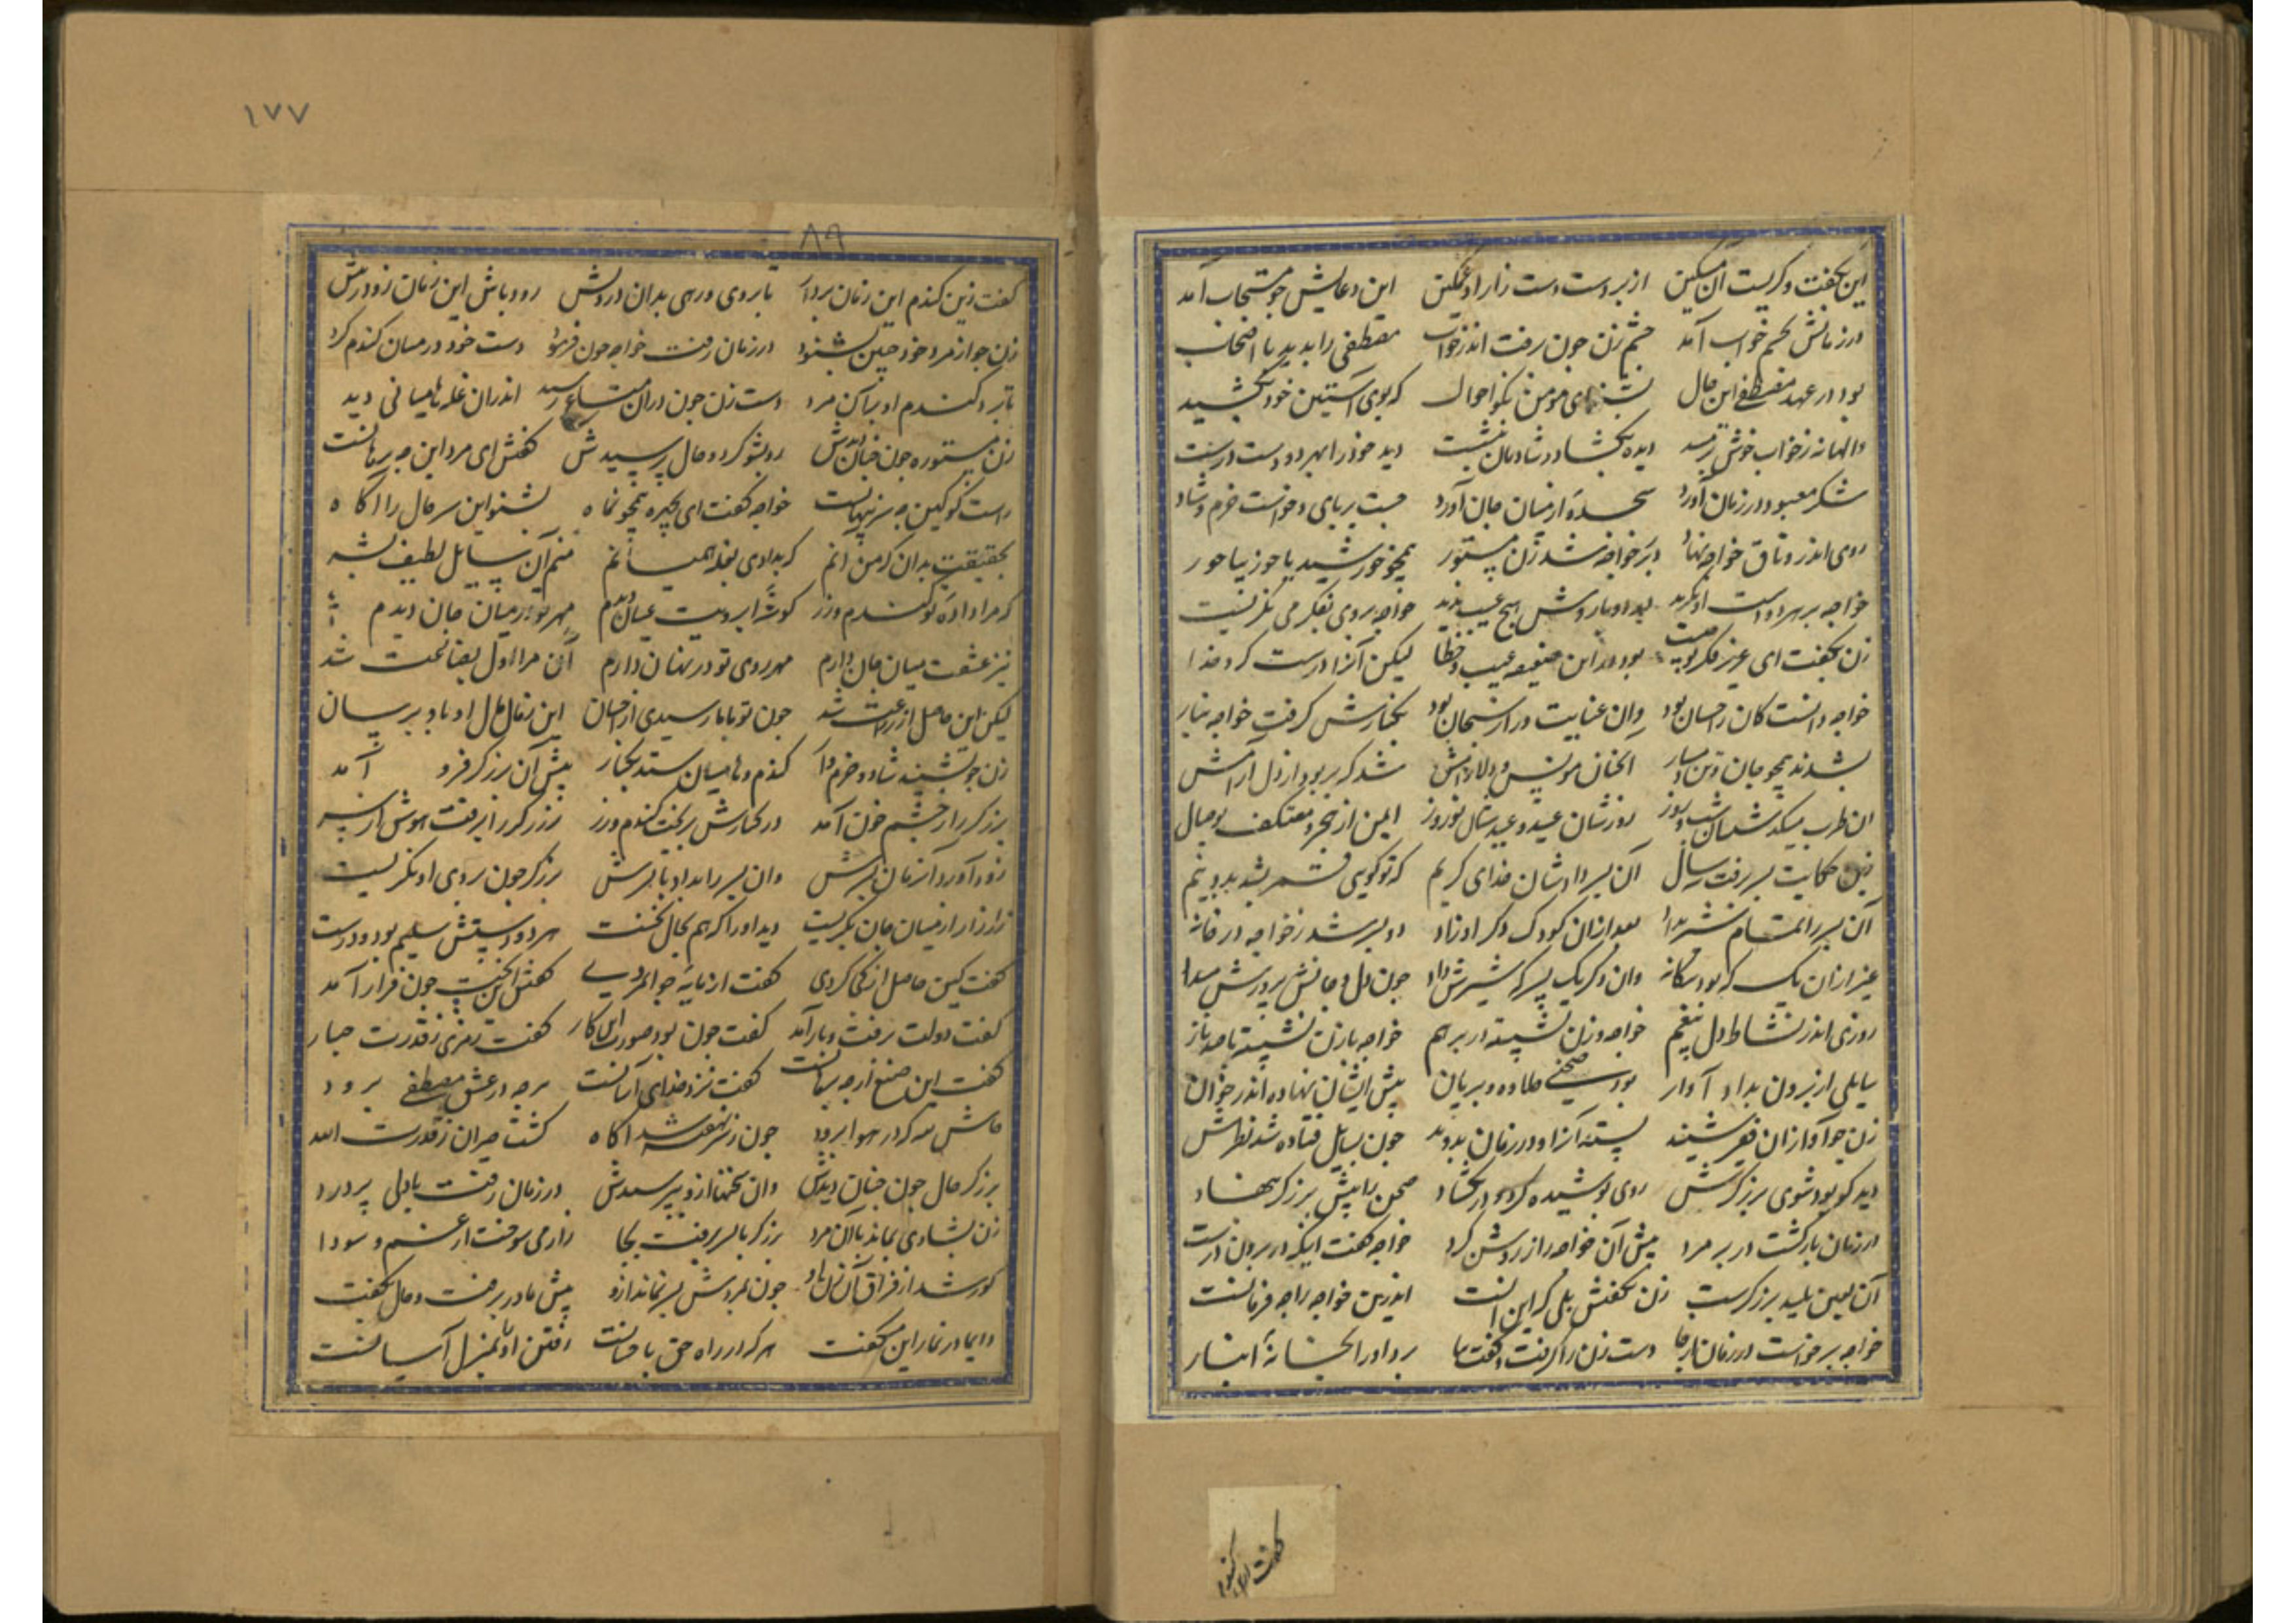 این بگفت و گریست آن مسکین از بر دست دست زار او غمگین این دعایش چو مستجاب آمد
در زمانش بچشم خواب آمد چشم زن چون برفت اندر خواب مصطفی را بدید با اصحاب
بود در عهد مصطفی این حال ای مومن نکو احوال که بوی آستین خود بکشید
والهانه ز خواب خوش دیده بگشاد و شادمان بنشست دید خود را بهر دو دست درست
شکر معبود در زمان آورد سجده از میان جان آورد جست بر پای و خواست خرم و شاد
روی اندر وثاق خواجه نهاد بر خواجه شد زن مستور همچو خورشید با حور
خواجه بر هر دو دست او نگرید هیچ عیب ندید خواجه بروی بفکر می نگریست
زن بگفت ای عزیز فکر تو چیست بود در این ضعیفه عیب و خطا لیکن آنرا درست کرد خدا
خواجه دانست کان ز احسان بود وان عنایت ورا ز سبحان بود بکنارش گرفت خواجه
بشدند همچو جان و تن مونس و دلارامش شد که بربود از دل آرامش
ان طرب میکند شبان روز روزشان عید و عیدشان نوروز ایمن از هجر و معتکف بوصال
زین حکایت بسر برفت سال آن پسر دادشان خدای کریم که تو گویی
آن پسر را تمام شیر بداد بعد ازان کودک دگر او زاد دو پسر شد ز خواجه در خانه
غیر ازان یک که بود بیگانه وان دگر یک پسر که شیرش داد چون دل و جانش پرورش میداد
روزی اندر نشاط دل بیغم خواجه و زن نشسته در بر هم خواجه با زن نشسته
سایلی از برون بداد آواز بود صحنی حلاوه و بریان پیش ایشان نهاده اندر خوان
زن چو آواز آن فقیر شنید بستد آنرا و در زمان بدوید چون بسایل فتاده شد نظرش
دید کو بود شوی برزگرش روی پوشیده کرد و در بگشاد صحن را پیش برزگر بنهاد
در زمان بازگشت در بر مرد پیش آن خواجه راز روشن کرد خواجه گفت اینکه در برون درست
آن لعین پلید برزگرست زن بگفتش بلی که این آنست اندرین خواجه را چه فرمانست
خواجه برخواست در زمان از جا دست زن را گرفت و گفت بیا برد او را بخانه انبار
۱۷۷
۸۹
گفت زین گندم این زمان بردار تا بروی دهی بدان درویش رود باش این زمان زودترش
زن چو از مرد خود چنین بشنود در زمان رفت خواجه چون فرمود دست خود در میان گندم کرد
تا برد گندم او بر آن مرد دست زن چون دران رسید اندران غله همیانی دید
زن مستوره چون چنان دیدش رو بشو کرد و حال پرسیدش گفتش ای مرد این چه برهانست
راست گو کین چه سر پنهانست خواجه گفت ای بچهره همچو ماه بشنو این سر حال را آگاه
بحقیقت بدان که من آنم که بدادی بغله همیانم منم آن سایل لطیف
که مرا داده تو گندم و زر گوشه ابرویت عیان دیدم مهر تو در میان جان دیدم
نیز عشقت میان جان دارم مهر روی تو در نهان دارم آن مرا اول بضاعت شد
لیکن این حاصل از زراعت شد چون تو با ما رسیدی از احسان این زمان مال او بدو برسان
زن چو بشنید شاد و خرم گندم و همیان ستد بکنار پیش آن برزگر فرو آمد
برزگر را ز چشم خون آمد در کنارش بریخت گندم و زر برزگر را برفت هوش از سر
زود آورد آن زمان پسرش وان پسر را بداد با پدرش برزگر چون بروی او نگریست
زار زار از میان جان بگریست دید او را که هم بحال نخست هر دو دستش سلیم بود و درست
گفت کین حاصل از کجا کردی گفت از مایه جوانمردی گفتش چون قرار آمد
گفت دولت برفت و باز آمد گفت چون بود صورت این کار گفت رمزی ز قدرت جبار
گفت این صنع از چه گفت نزد خدای آسانست هر چه در عشق مصطفی برود
در هوا برود چون ز سر نهفته شد آگاه گشت حیران ز قدرت الله
برزگر حال چون چنان دیدش وان سخنها ازو بپرسیدش در زمان رفت با دلی پر درد
زن بشادی بماند با آن مرد برزگر با پسر برفت بجا زار می سوخت از غم و سودا
کور شد از فراق آن زن چون پسر نماند ازو پیش مادر برفت و حال بگفت
دایما در نماز این میگفت هر که در راه حق با رفتن او بمنزل آسانست